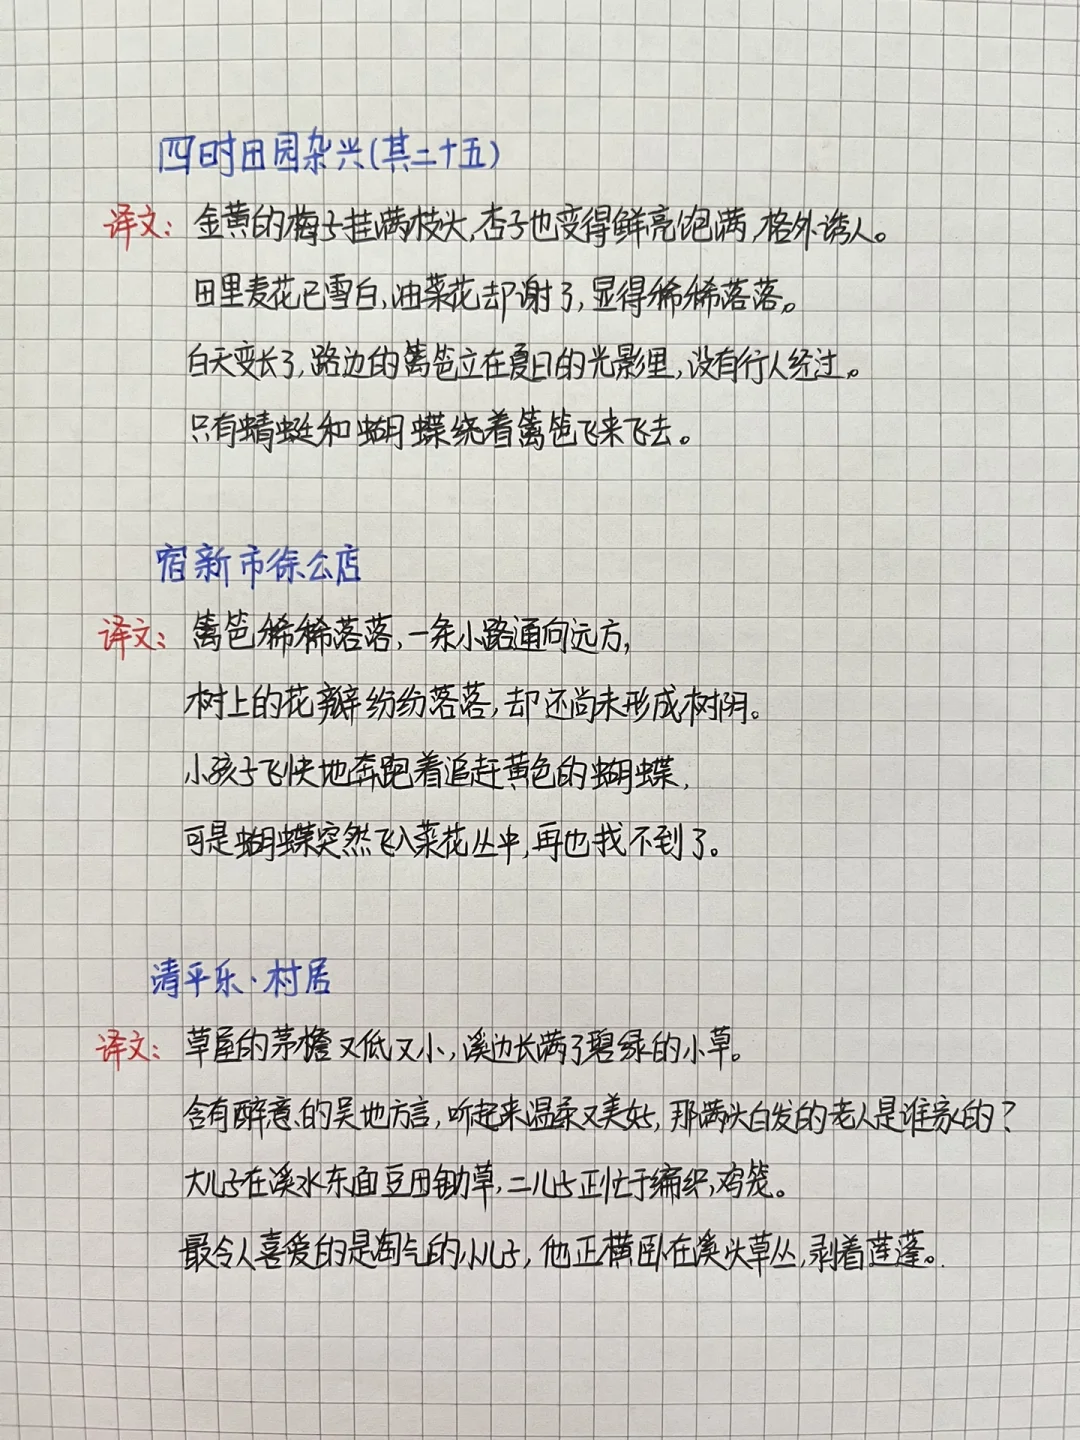 四时田园杂兴(其二十五)
译文：金黄的梅子挂满枝头,杏子也变得鲜亮饱满,格外诱人。
田里麦花已雪白,油菜花却谢了,显得稀稀落落。
白天变长了,路边的篱笆立在夏日的光影里,没有行人经过。
只有蜻蜓和蝴蝶绕着篱笆飞来飞去。
宿新市徐公店
译文：篱笆稀稀落落,一条小路通向远方,
树上的花瓣纷纷落落,却还尚未形成树阴。
小孩子飞快地奔跑着追赶黄色的蝴蝶,
可是蝴蝶突然飞入菜花丛中,再也找不到了。
清平乐·村居
译文：草屋的茅檐又低又小,溪边长满了碧绿的小草。
含有醉意的吴地方言,听起来温柔又美好,那满头白发的老人是谁家的？
大儿子在溪水东面豆田锄草,二儿子正忙于编织鸡笼。
最令人喜爱的是淘气的小儿子,他正横卧在溪头草丛,剥着莲蓬。